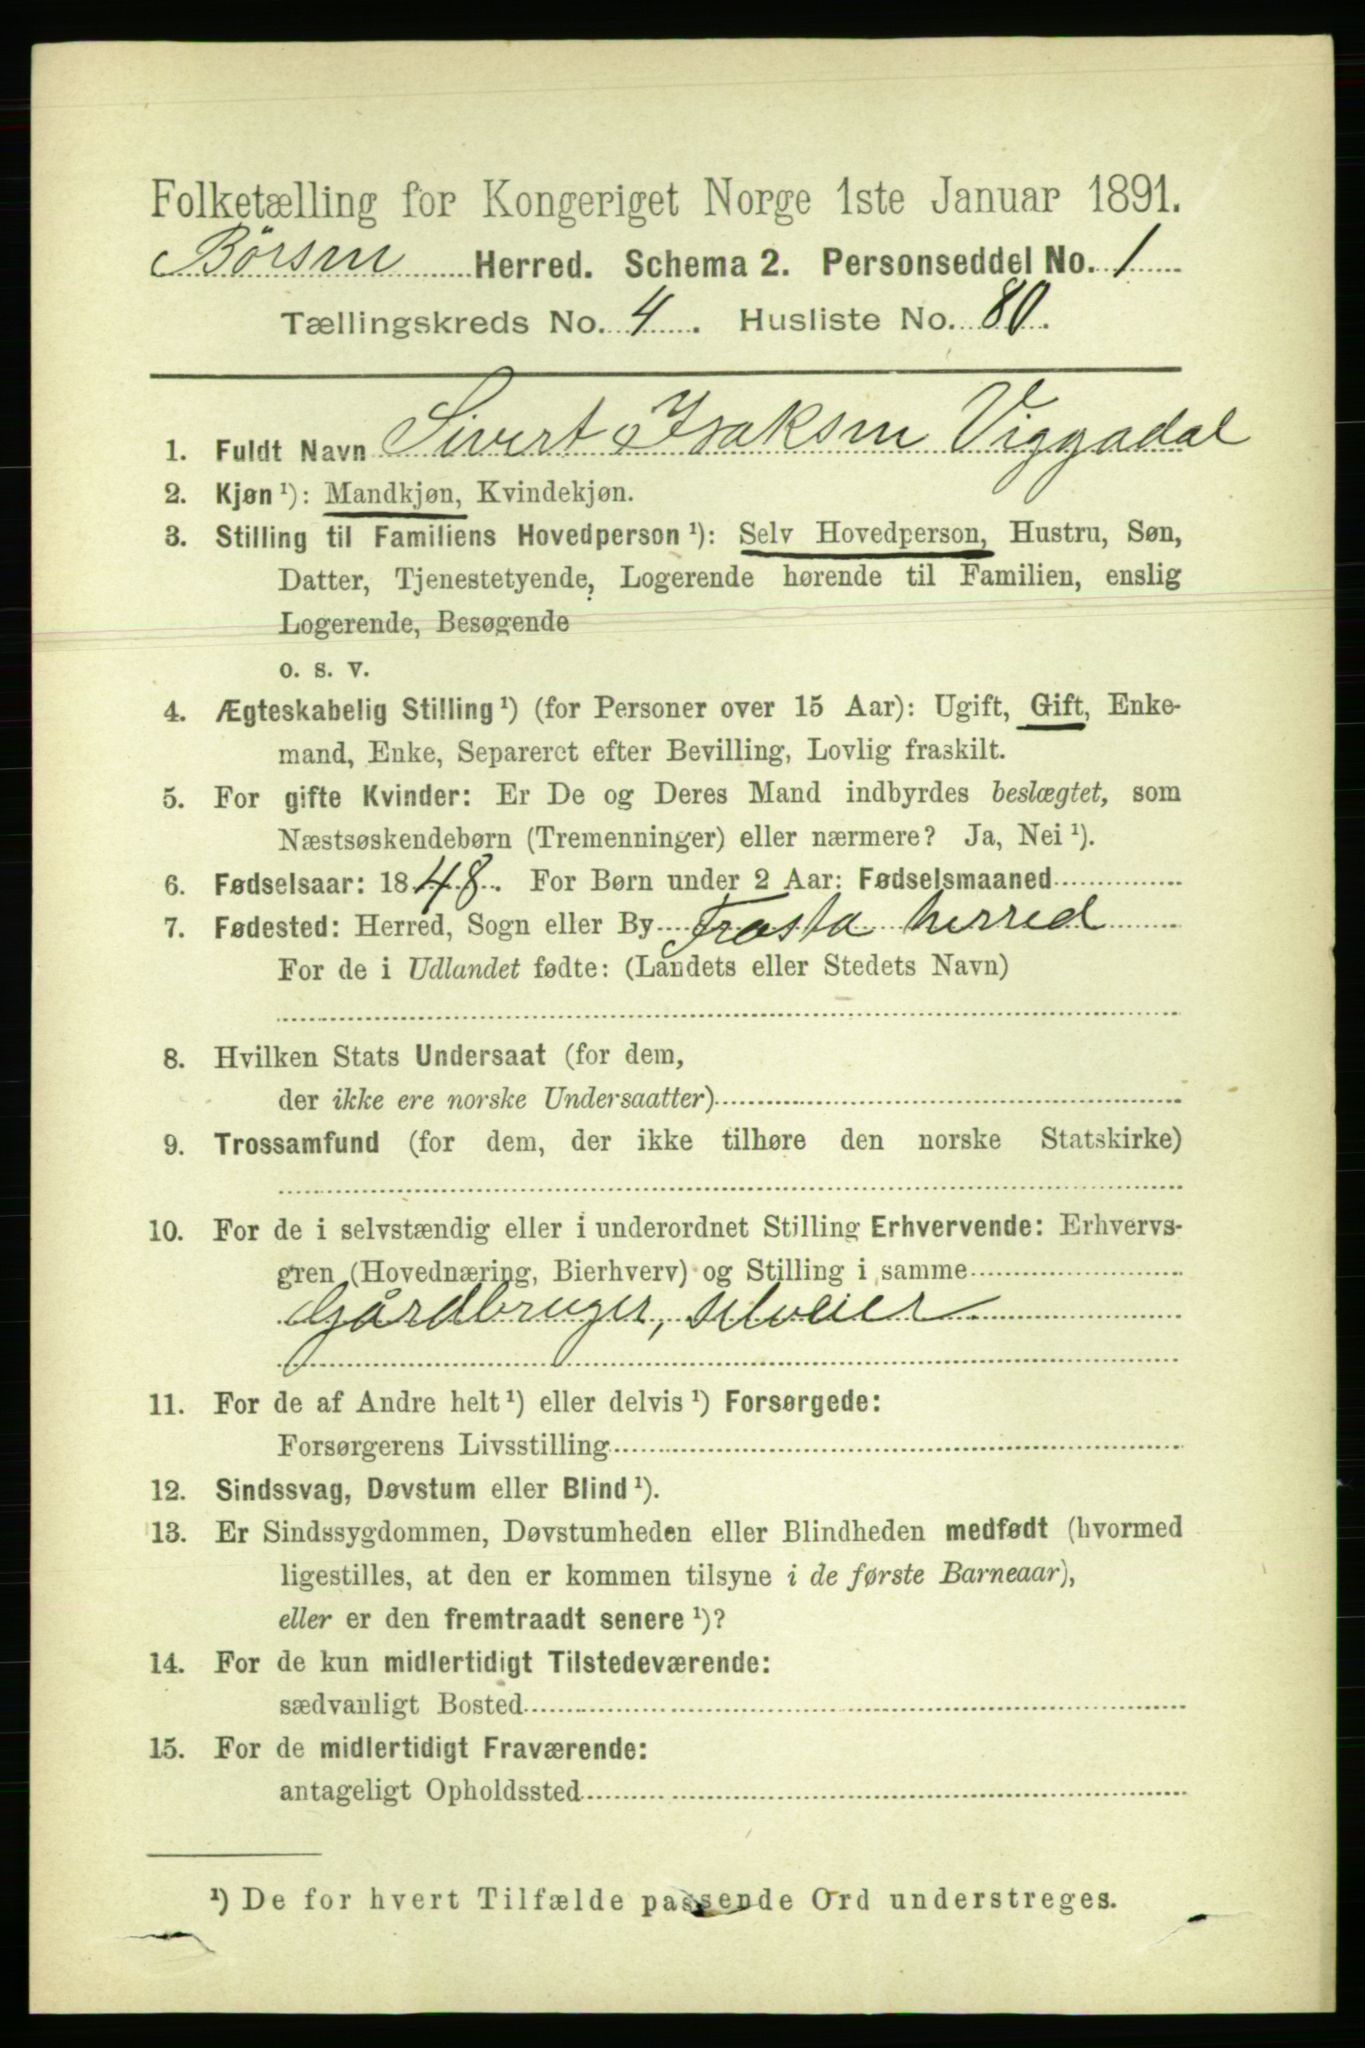 Folketælling for Kongeriget Norge 1ste Januar 1891.
Børsen Herred. Schema 2. Personseddel No. 1
Tællingskreds No. 4. Husliste No. 80.
1. Fuldt Navn Sivert Isaksen Viggadal
2. Kjøn ¹): Mandkjøn, Kvindekjøn.
3. Stilling til Familiens Hovedperson ¹): Selv Hovedperson, Hustru, Søn,
Datter, Tjenestetyende, Logerende hørende til Familien, enslig
Logerende, Besøgende
o. s. v.
4. Ægteskabelig Stilling ¹) (for Personer over 15 Aar): Ugift, Gift, Enke-
mand, Enke, Separeret efter Bevilling, Lovlig fraskilt.
5. For gifte Kvinder: Er De og Deres Mand indbyrdes beslægtet, som
Næstsøskendebørn (Tremenninger) eller nærmere? Ja, Nei ¹).
6. Fødselsaar: 1848. For Børn under 2 Aar: Fødselsmaaned
7. Fødested: Herred, Sogn eller By Frosta herred
For de i Udlandet fødte: (Landets eller Stedets Navn)
8. Hvilken Stats Undersaat (for dem,
der ikke ere norske Undersaatter)
9. Trossamfund (for dem, der ikke tilhøre den norske Statskirke)
10. For de i selvstændig eller i underordnet Stilling Erhvervende: Erhvervs-
gren (Hovednæring, Bierhverv) og Stilling i samme
Gårdbruger, selveier
11. For de af Andre helt ¹) eller delvis ¹) Forsørgede:
Forsørgerens Livsstilling
12. Sindssvag, Døvstum eller Blind ¹).
13. Er Sindssygdommen, Døvstumheden eller Blindheden medfødt (hvormed
ligestilles, at den er kommen tilsyne i de første Barneaar),
eller er den fremtraadt senere ¹)?
14. For de kun midlertidigt Tilstedeværende:
sædvanligt Bosted
15. For de midlertidigt Fraværende:
antageligt Opholdssted
¹) De for hvert Tilfælde passende Ord understreges.